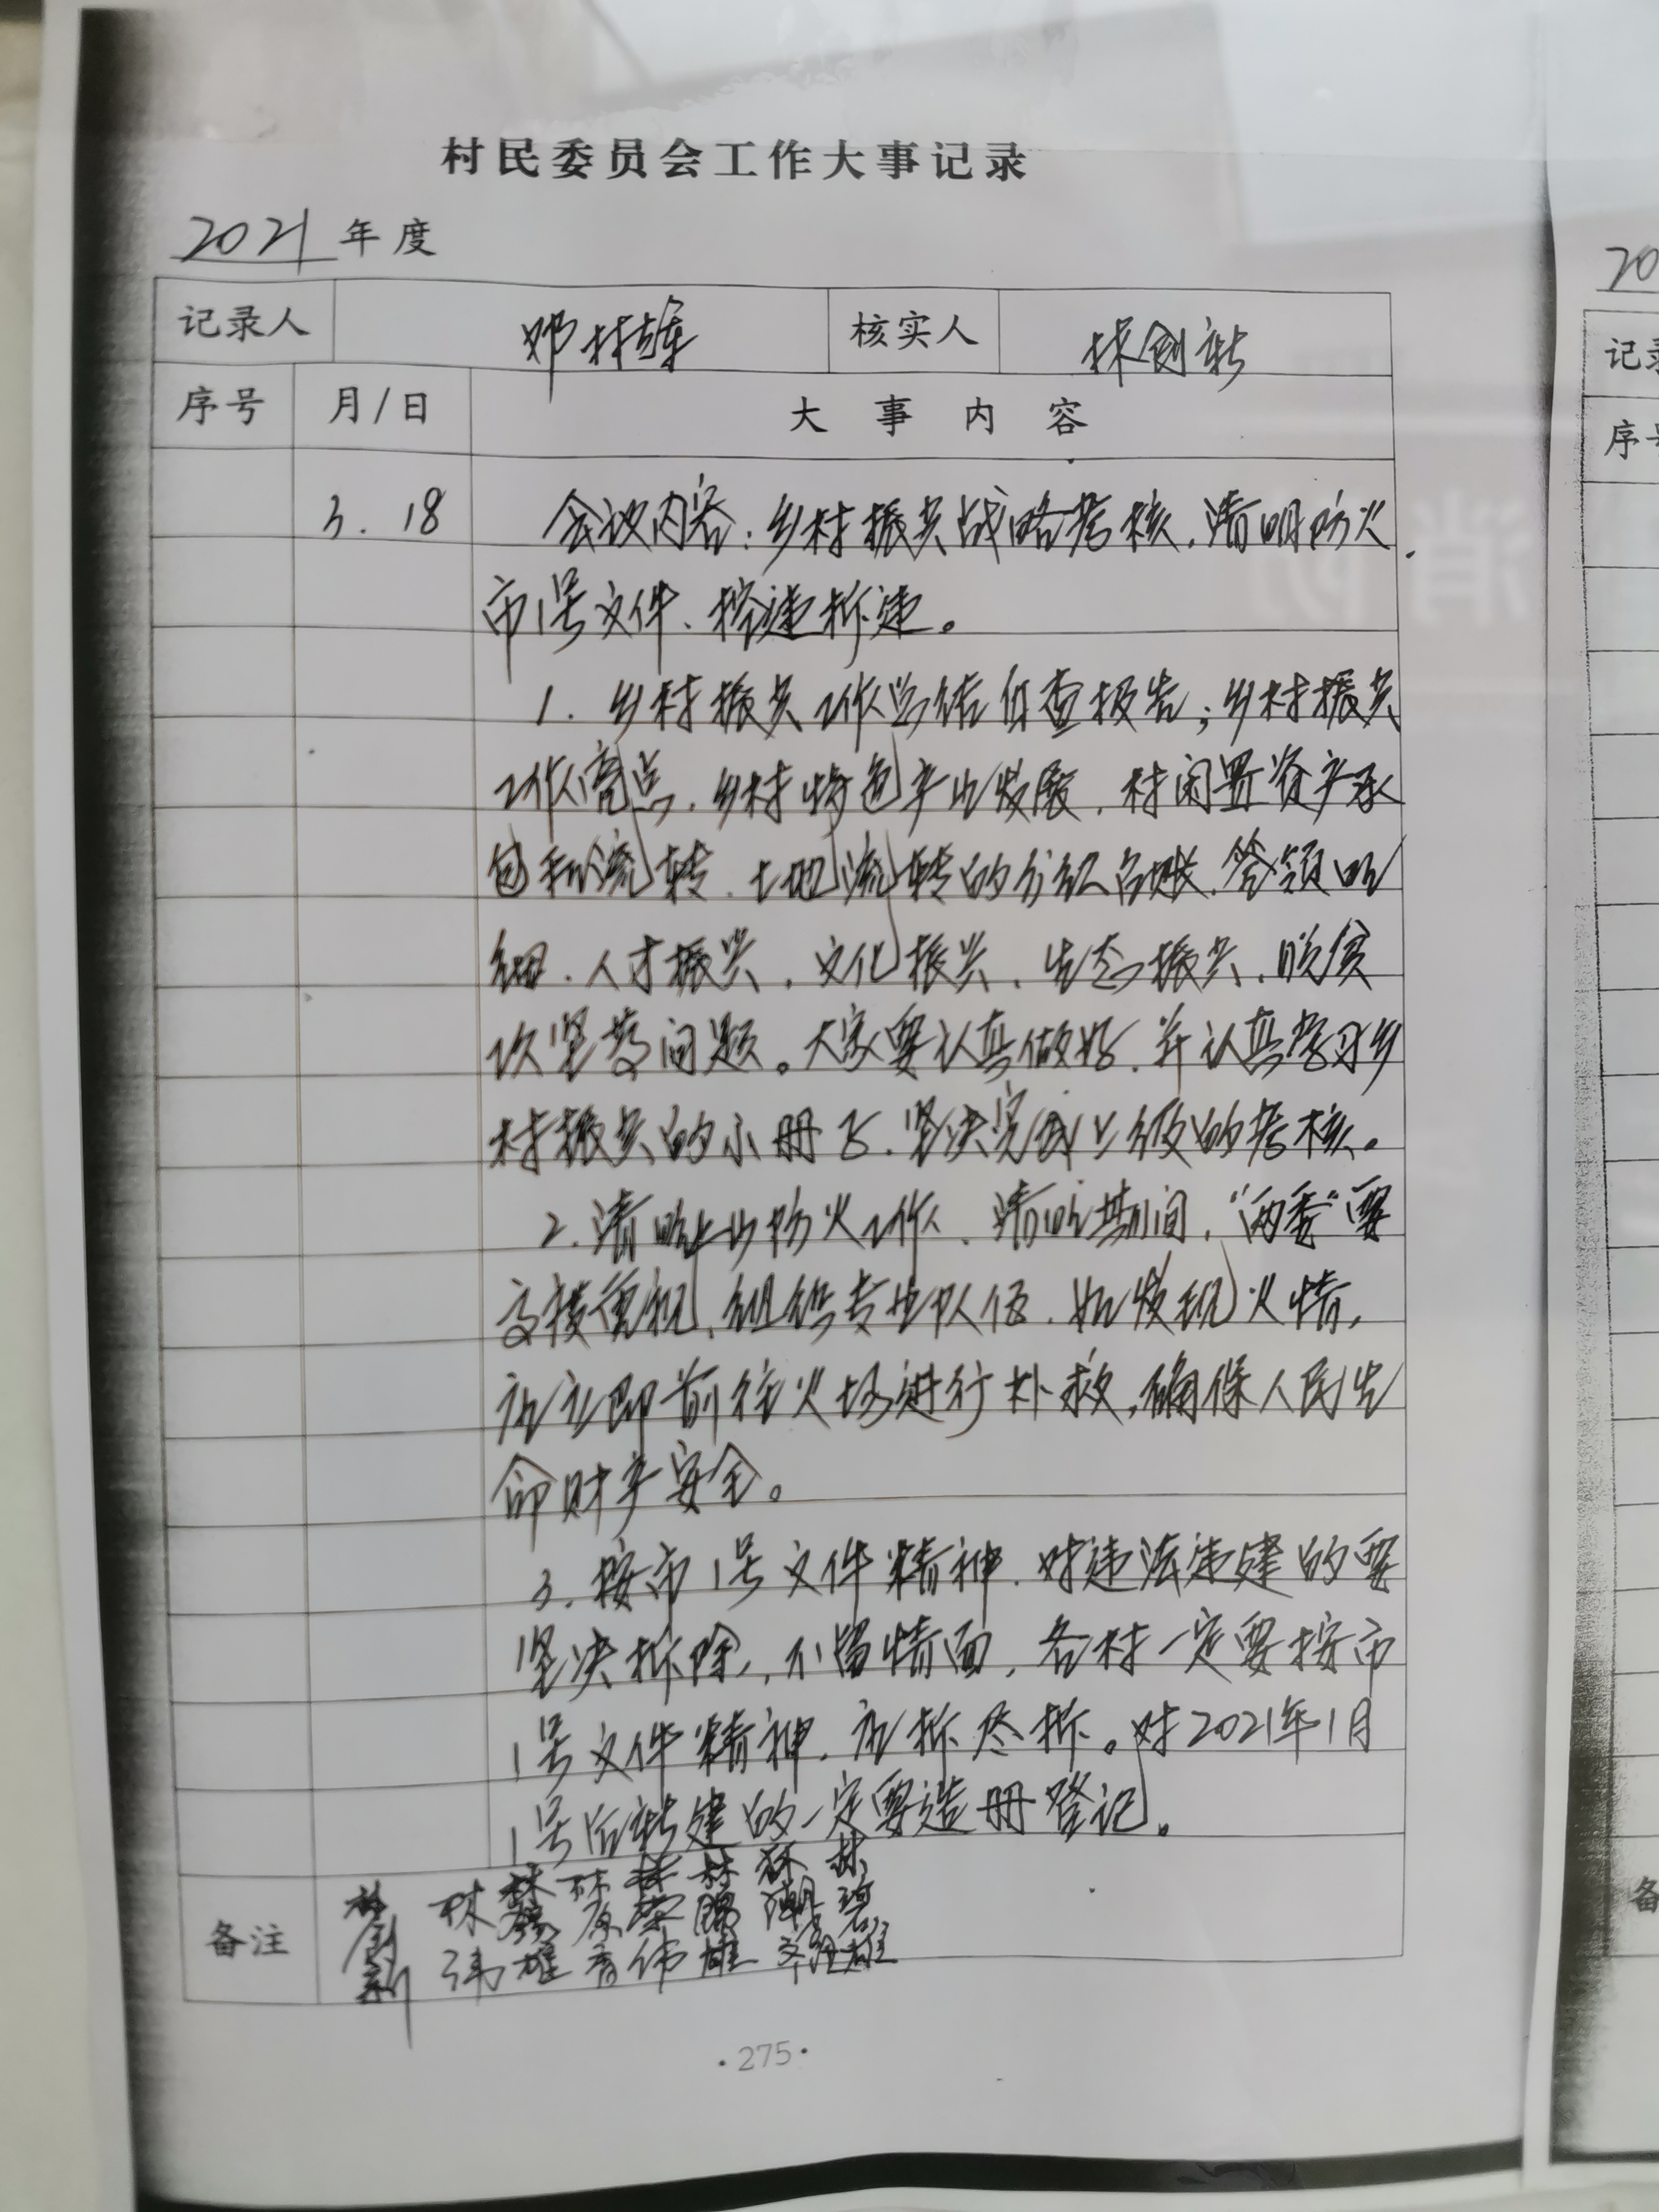 村民委员会工作大事记录
2021年度
记录人 邓村雄 核实人 林创新
序号 月/日 大事内容
3.18 会议内容:乡村振兴战略考核,清明防火,
市1号文件、控违拆违。
1. 乡村振兴工作总结自查报告;乡村振兴
工作亮点,乡村特色产业发展,村闲置资产承
包和流转,土地流转的分红台账,签领明
细,人才振兴,文化振兴,生态振兴,脱贫
攻坚等问题。大家要认真做好,并认真学习乡
村振兴的小册子,坚决完成上级的考核。
2. 清明上山防火工作,清明期间,“两委”要
高度重视,组织专业队伍,如发现火情,
应立即前往火场进行扑救,确保人民生
命财产安全。
3. 按市1号文件精神,对违法违建的要
坚决拆除,不留情面,各村一定要按市
1号文件精神,应拆尽拆。对2021年1月
1号后新建的一定要造册登记。
备注
·275·
消防
20
记录
序号
备